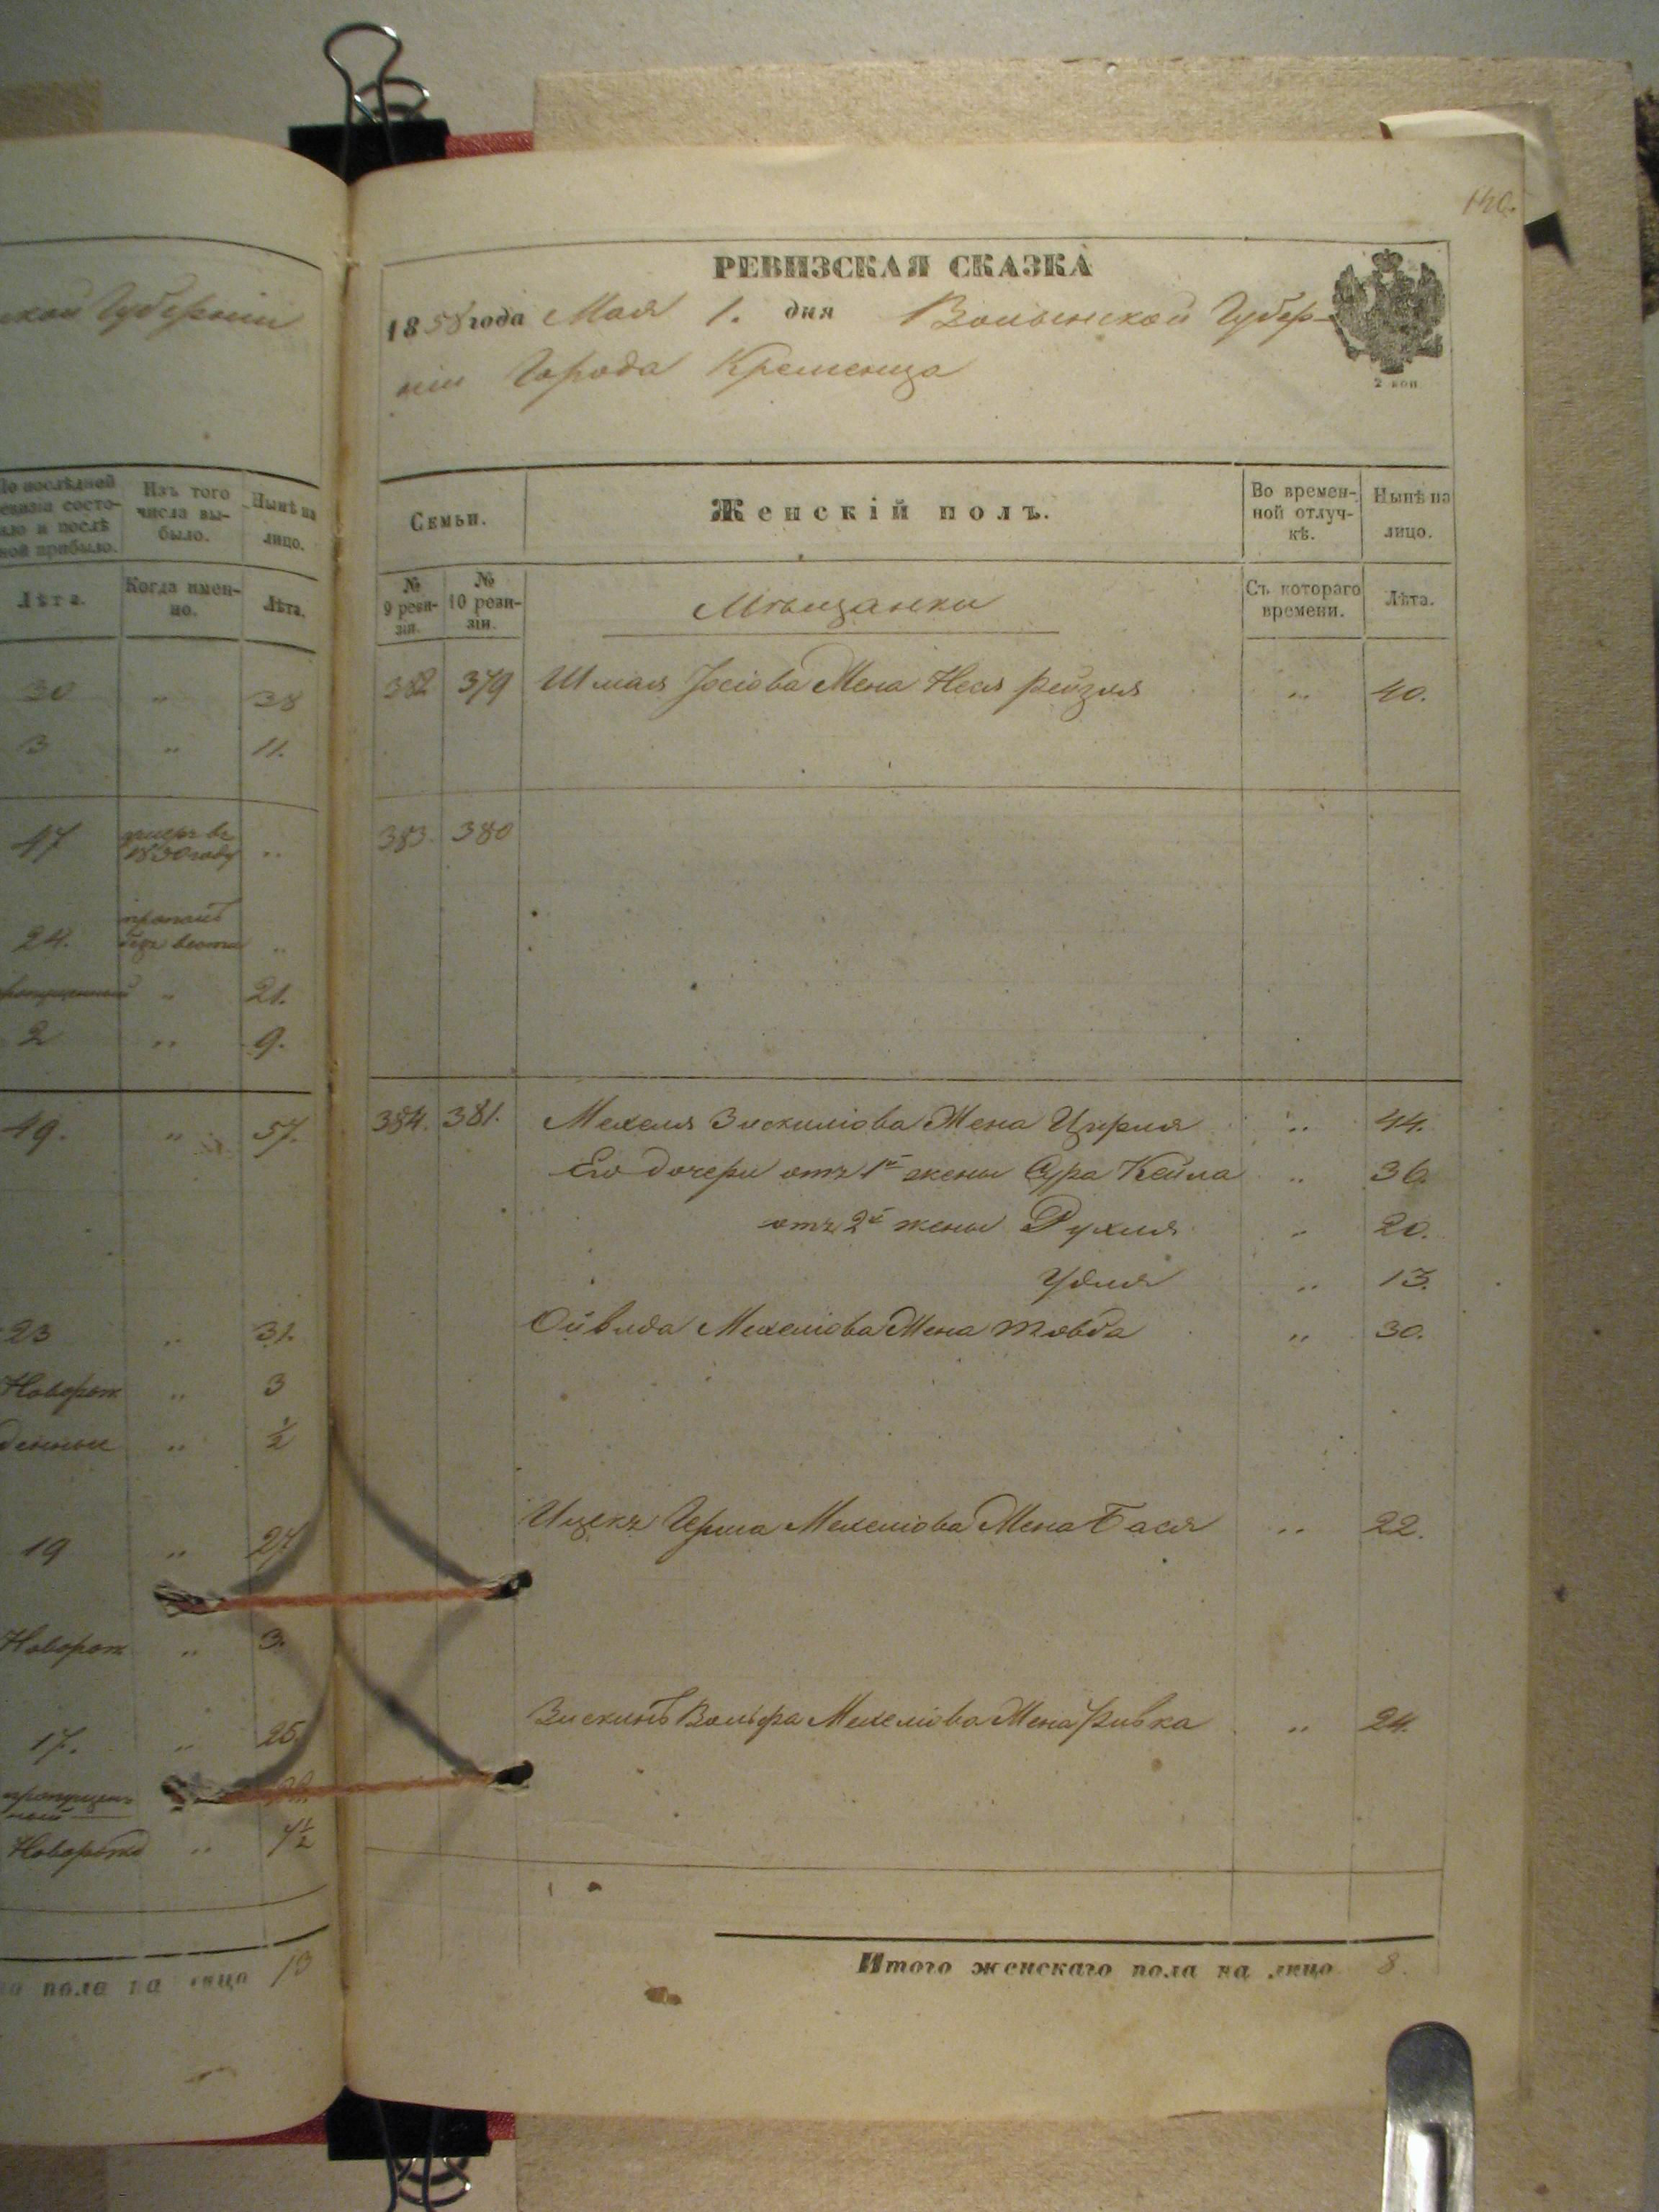 кой Губерніи
По послѣдней ревизіи состояло и послѣ оной прибыло.
Изъ того числа выбыло.
Нынѣ на лицо.
Лѣта.
Когда именно.
Лѣта.
30 " 38
3 " 11.
47 умеръ въ 1850 году "
24. пропалъ безъ вести "
" 21.
2 " 9.
49. " 57.
23 " 31.
Новорож " 3
денные " ½
19 " 27
Новорож " 3.
17. " 25.
пропущен
ный
Новорожд "
пола на лицо 13
140.
РЕВИЗСКАЯ СКАЗКА
1858 года Мая 1. дня Волынской Губер-
ніи Города Кременца
2 коп
Семьи.
Женскій полъ.
Во времен-
ной отлуч-
кѣ.
Нынѣ на
лицо.
№
9 реви-
зіи.
№
10 реви-
зіи.
Мѣщанки
Съ котораго
времени.
Лѣта.
382 379 Шмаля Іосіова Жена Неся Рейзля " 40.
383. 380
384. 381. Мехеля Зискиліова Жена Цирля " 44.
Его дочери отъ 1й жены Сура Кейла " 36.
отъ 2й жены Рухля " 20.
Удля " 13.
Ойвида Мехеліова Жена Товба " 30.
Ицекъ Герша Мехеліова Жена Бася " 22.
Зискинъ Вольфа Мехеліова Жена Ривка " 24.
Итого женскаго пола на лицо 8.